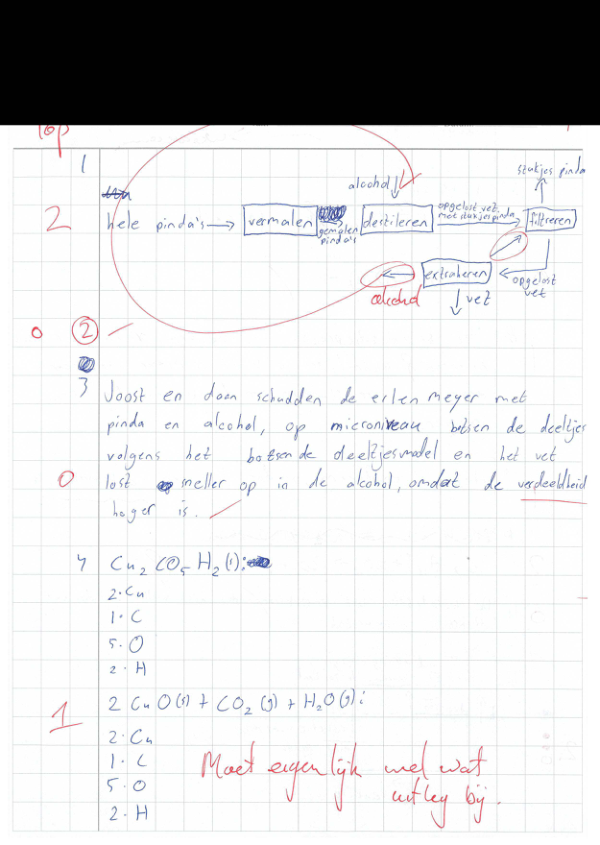 Top
1
stukjes pinda
alcohol
2
hele pinda's → vermalen → gemalen pinda's → destileren → opgelost vet met stukjes pinda → filtreren
alcohol ← extraheren ← opgelost vet
vet
0 2
3 Joost en daan schudden de erlenmeyer met
pinda en alcohol, op microniveau botsen de deeltjes
volgens het botsende deeltjesmodel en het vet
0 lost sneller op in de alcohol, omdat de verdeeldheid
hoger is.
4 Cu₂CO₅H₂(s):
2·Cu
1·C
5·O
2·H
2 CuO(s) + CO₂(g) + H₂O(g):
1
2·Cu
1·C
5·O
2·H
Moet eigenlijk wel wat
uitleg bij.